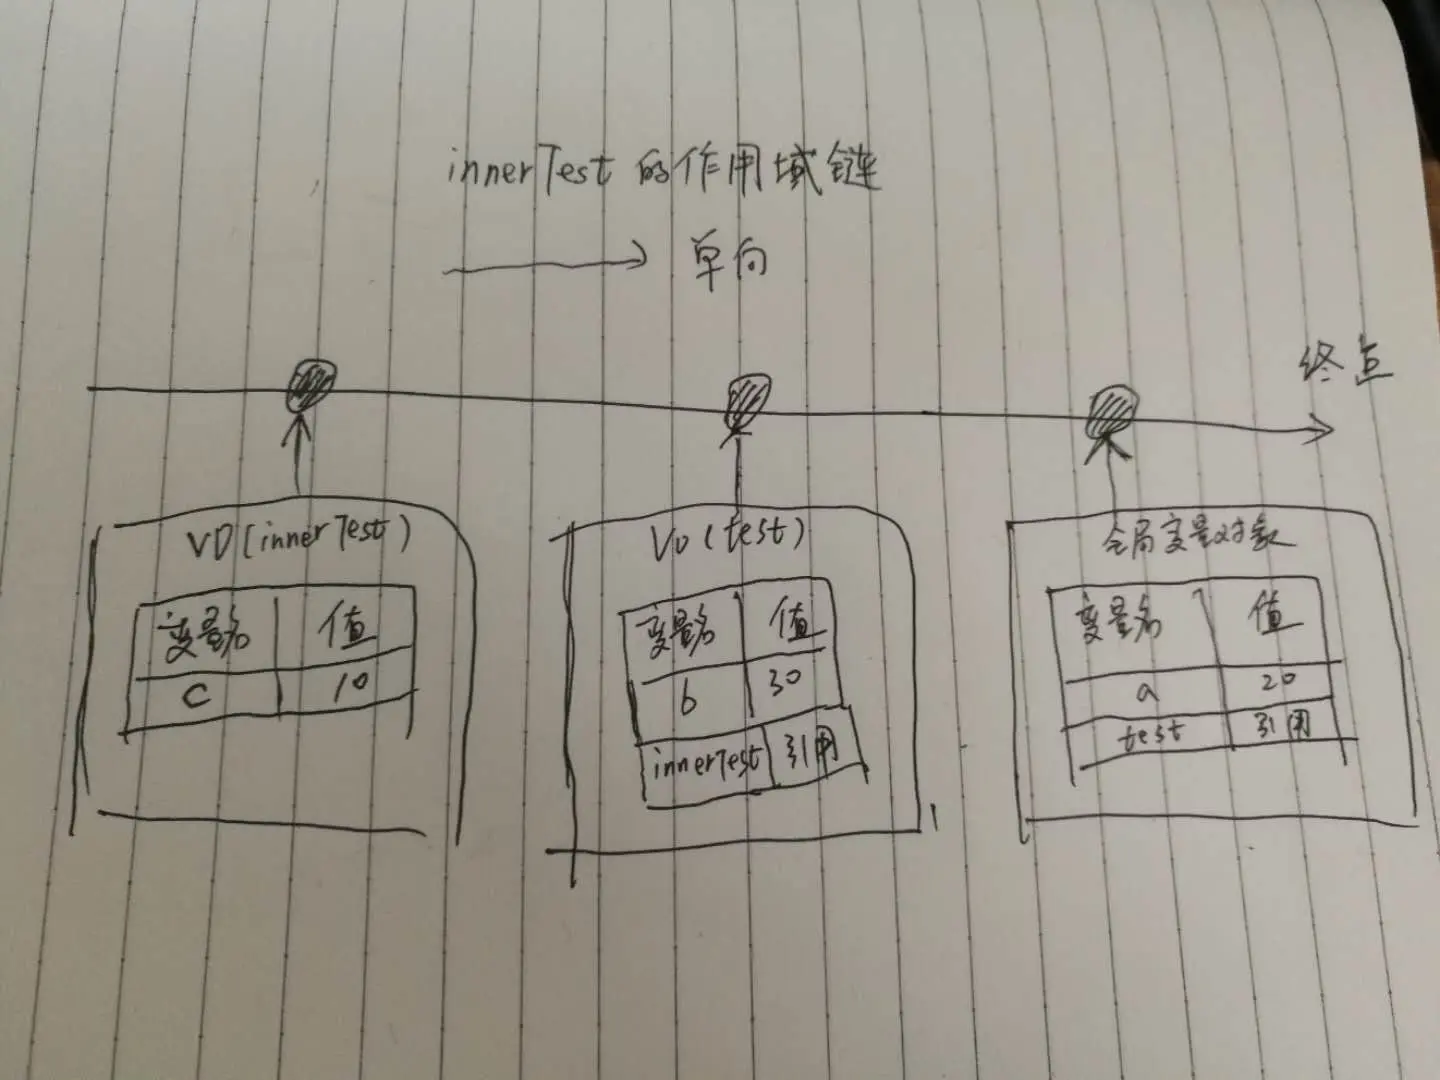 innerTest 的作用域链
单向
终点
VO(innerTest)
变量名 值
c 10
VO(test)
变量名 值
b 30
innerTest 引用
全局变量对象
变量名 值
a 20
test 引用